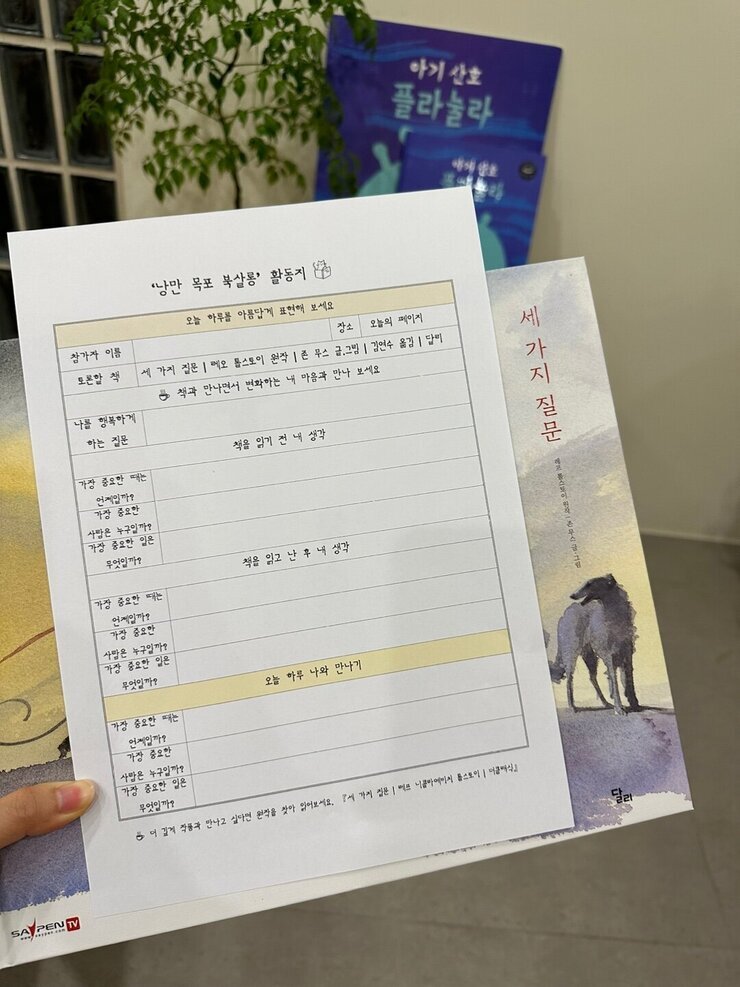 아기 산호
플라눌라
아기 산호
플라눌라
'낭만 목포 북살롱' 활동지
오늘 하루를 아름답게 표현해 보세요
참가자 이름
장소
오늘의 페이지
토론할 책
세 가지 질문 | 레오 톨스토이 원작 | 존 무스 글.그림 | 김연수 옮김 | 달리
책과 만나면서 변화하는 내 마음과 만나 보세요
나를 행복하게
하는 질문
책을 읽기 전 내 생각
가장 중요한 때는
언제일까?
가장 중요한
사람은 누구일까?
가장 중요한 일은
무엇일까?
책을 읽고 난 후 내 생각
가장 중요한 때는
언제일까?
가장 중요한
사람은 누구일까?
가장 중요한 일은
무엇일까?
오늘 하루 나와 만나기
가장 중요한 때는
언제일까?
가장 중요한
사람은 누구일까?
가장 중요한 일은
무엇일까?
더 깊게 작품과 만나고 싶다면 원작을 찾아 읽어보세요. 『세 가지 질문 | 레프 니콜라예비치 톨스토이 | 더클래식』
세 가지 질문
레오 톨스토이 원작 · 존 무스 글·그림
달리
SAYPEN TV
www.saypen.com